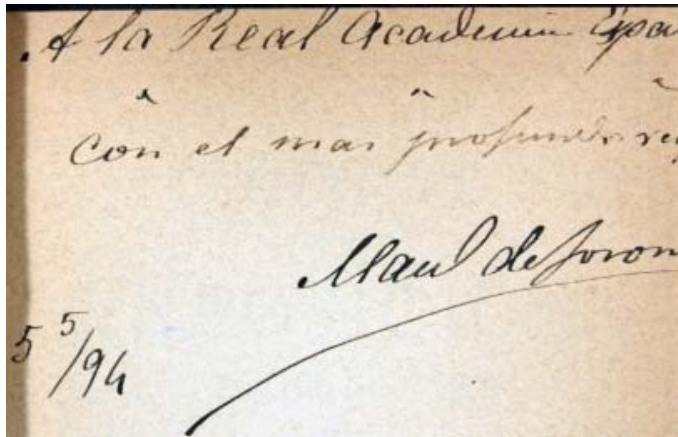 A la Real Academia Espa
con el mas profundo res
Manl de Foron
5 5/94